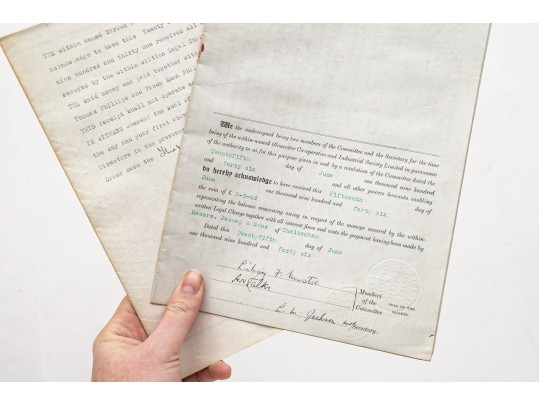 THE within named Stroud
acknowledge to have this Twenty
nine hundred and thirty one received
secured by the within written Legal
THE said money was paid together with
Thomas Phillips and
THIS receipt shall not operate
IN WITNESS whereof the seal of
the day and year first
Directors in the presence
Order made the
We the undersigned being two members of the Committee and the Secretary for the time
being of the within-named Gloucester Co-operative and Industrial Society Limited in pursuance
of the authority to us for this purpose given in and by a resolution of the Committee dated the
Twentyfifth day of June one thousand nine hundred
and forty six and all other powers hereunto enabling
do hereby acknowledge to have received this Fifteenth day of
June one thousand nine hundred and forty six
the sum of £
representing the balance remaining owing in respect of the moneys secured by the within-
written Legal Charge together with all interest fines and costs the payment having been made by
Messrs. & Sons of Cheltenham
Dated this Twentyfifth day of June
one thousand nine hundred and forty six
Members
of the
Committee
SEAL OF THE
SOCIETY.
Jackson
Secretary.